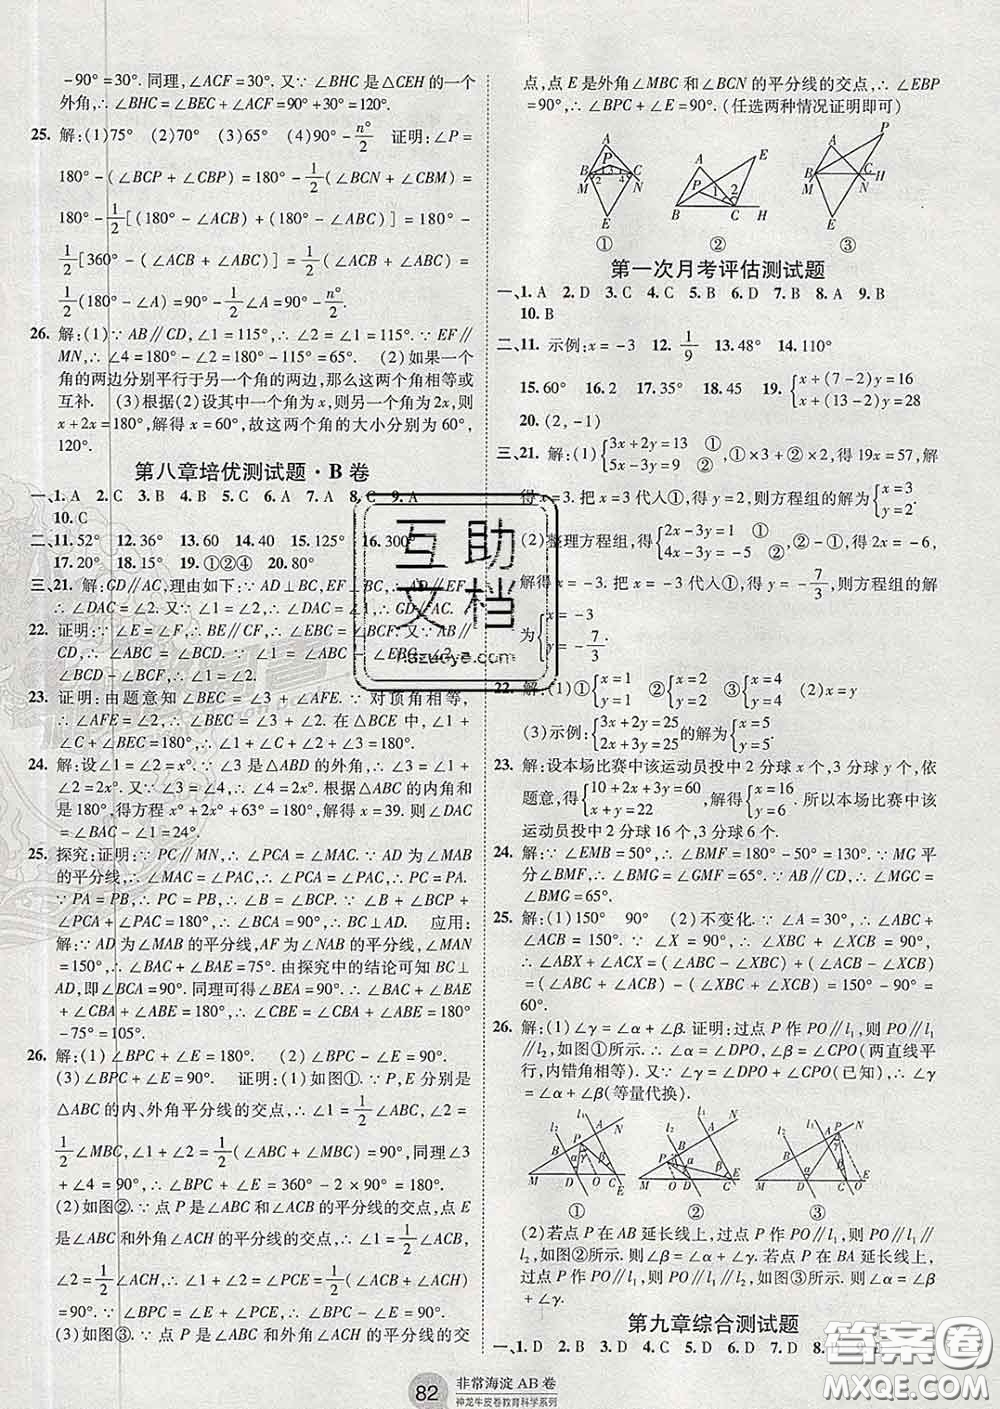 -90°=30°. 同理,∠ACF=30°. 又∵∠BHC是△CEH的一个
外角,∴∠BHC=∠BEC+∠ACF=90°+30°=120°.
25. 解:(1)75° (2)70° (3)65° (4)90°-n°/2 证明:∠P=
180°-(∠BCP+∠CBP)=180°-1/2(∠BCN+∠CBM)=
180°-1/2[(180°-∠ACB)+(180°-∠ABC)]=180°-
1/2[360°-(∠ACB+∠ABC)]=1/2(∠ACB+∠ABC)=
1/2(180°-∠A)=90°-1/2∠A=90°-n°/2.
26. 解:(1)∵AB∥CD,∠1=115°,∴∠2=∠1=115°.∵EF∥
MN,∴∠4=180°-∠2=180°-115°=65°. (2)如果一个
角的两边分别平行于另一个角的两边,那么这两个角相等或
互补. (3)根据(2)设其中一个角为x,则另一个角为2x,则
x+2x=180°,解得x=60°,故这两个角的大小分别为60°,
120°.
第八章培优测试题·B卷
一、1. A 2. C 3. B 4. B 5. C 6. B 7. A 8. C 9. A
10. C
二、11. 52° 12. 36° 13. 60 14. 40 15. 125° 16. 300°
17. 20° 18. 20° 19. ①②④ 20. 80°
三、21. 解:GD∥AC,理由如下:∵AD⊥BC,EF⊥BC,∴AD∥EF,
∴∠DAC=∠2.又∵∠1=∠2,∴∠DAC=∠1,∴GD∥AC.
22. 证明:∵∠E=∠F,∴BE∥CF,∴∠EBC=∠BCF.又∵AB∥
CD,∴∠ABC=∠BCD.∵∠1=∠ABC-∠EBC,∠2=
∠BCD-∠BCF,∴∠1=∠2.
23. 证明:由题意知∠BEC=∠3+∠AFE.∵对顶角相等,
∴∠AFE=∠2,∴∠BEC=∠3+∠2.在△BCE中,∠1+
∠C+∠BEC=180°,∴∠1+∠C+∠3+∠2=180°.
24. 解:设∠1=∠2=x.∵∠3是△ABD的外角,∴∠3=∠1+
∠2=2x.又∵∠3=∠4,∴∠4=2x.根据△ABC的内角和
是180°,得方程x°+2x°+63°=180°,解得x=39.故∠DAC
=∠BAC-∠1=24°.
25. 探究:证明:∵PC∥MN,∴∠PCA=∠MAC.∵AD为∠MAB
的平分线,∴∠MAC=∠PAC,∴∠PCA=∠PAC,∴PC=PA.
∵PA=PB,∴PC=PB,∴∠B=∠BCP.∵∠B+∠BCP+
∠PCA+∠PAC=180°,∴∠BCA=90°,∴BC⊥AD. 应用:
解:∵AD为∠MAB的平分线,AF为∠NAB的平分线,∠MAN
=150°,∴∠BAC+∠BAE=75°.由探究中的结论可知BC⊥
AD,即∠BCA=90°.同理可得∠BEA=90°.∵∠CBA+∠BCA
+∠CAB+∠ABE=180°,∴∠CBE=∠CBA+∠ABE=180°
-75°=105°.
26. 解:(1)∠BPC+∠E=180°. (2)∠BPC-∠E=90°.
(3)∠BPC+∠E=90°. 证明:(1)如图①.∵P,E分别是
△ABC的内、外角平分线的交点,∴∠1=1/2∠ABC,∠2=
1/2∠MBC,∴∠1+∠2=1/2(∠ABC+∠MBC)=90°,同理∠3
+∠4=90°,∴∠BPC+∠E=360°-2×90°=180°.
(2)如图②.∵点P是∠ABC和∠ACB的平分线的交点,点E
是∠ABC和外角∠ACH的平分线的交点,∴∠1=1/2∠ACB,
∠2=1/2∠ACH,∴∠1+∠2=∠PCE=1/2(∠ACB+∠ACH)
=90°.∵∠BPC=∠E+∠PCE,∴∠BPC-∠E=90°.
(3)如图③.∵点P是∠ABC和外角∠ACH的平分线的交
点,点E是外角∠MBC和∠BCN的平分线的交点,∴∠EBP
=90°,∴∠BPC+∠E=90°.(任选两种情况证明即可)
① ② ③
第一次月考评估测试题
一、1. A 2. D 3. C 4. C 5. B 6. D 7. B 8. A 9. B
10. B
二、11. 示例:x=-3 12. 1/9 13. 48° 14. 110°
15. 60° 16. 2 17. 35° 18. 45 19. {x+(7-2)y=16 x+(13-2)y=28
20. (2,-1)
三、21. 解:(1){3x+2y=13 ① 5x-3y=9 ②,①×3+②×2,得19x=57,解
得x=3.把x=3代入①,得y=2,则方程组的解为{x=3 y=2.
(2)整理方程组,得{2x-3y=1 ① 4x-3y=-5 ②,②-①,得2x=-6,
解得x=-3.把x=-3代入①,得y=-7/3,则方程组的解
为{x=-3 y=-7/3.
22. 解:(1)①{x=1 y=1 ②{x=2 y=2 ③{x=4 y=4 (2)x=y
(3)示例:{3x+2y=25 2x+3y=25的解为{x=5 y=5.
23. 解:设本场比赛中该运动员投中2分球x个,3分球y个,依
题意,得{10+2x+3y=60 x+y=22,解得{x=16 y=6.所以本场比赛中该
运动员投中2分球16个,3分球6个.
24. 解:∵∠EMB=50°,∴∠BMF=180°-50°=130°.∵MG平
分∠BMF,∴∠BMG=∠GMF=65°.∵AB∥CD,∴∠1=
∠BMG=65°.
25. 解:(1)150° 90° (2)不变化.∵∠A=30°,∴∠ABC+
∠ACB=150°.∵∠X=90°,∴∠XBC+∠XCB=90°,
∴∠ABX+∠ACX=(∠ABC-∠XBC)+(∠ACB-∠XCB)
=(∠ABC+∠ACB)-(∠XBC+∠XCB)=150°-90°=
60°.
26. 解:(1)∠γ=∠α+∠β.证明:过点P作PO∥l₁,则PO∥l₁
∥l₂,如图①所示.∴∠α=∠DPO,∠β=∠CPO(两直线平
行,内错角相等).∵∠γ=∠DPO+∠CPO(已知),∴∠γ
=∠α+∠β(等量代换).
① ② ③
(2)若点P在AB延长线上,过点P作PO∥l₁,则PO∥l₁∥
l₂,如图②所示.则∠β=∠α+∠γ.若点P在BA延长线上,
过点P作PO∥l₁,则PO∥l₁∥l₂,如图③所示.则∠α=∠β
+∠γ.
第九章综合测试题
一、1. D 2. D 3. C 4. C 5. D 6. D 7. D
82 非常海淀 AB卷
神龙牛皮卷教育科学系列
互助
文档
答案卷
MXQE.COM